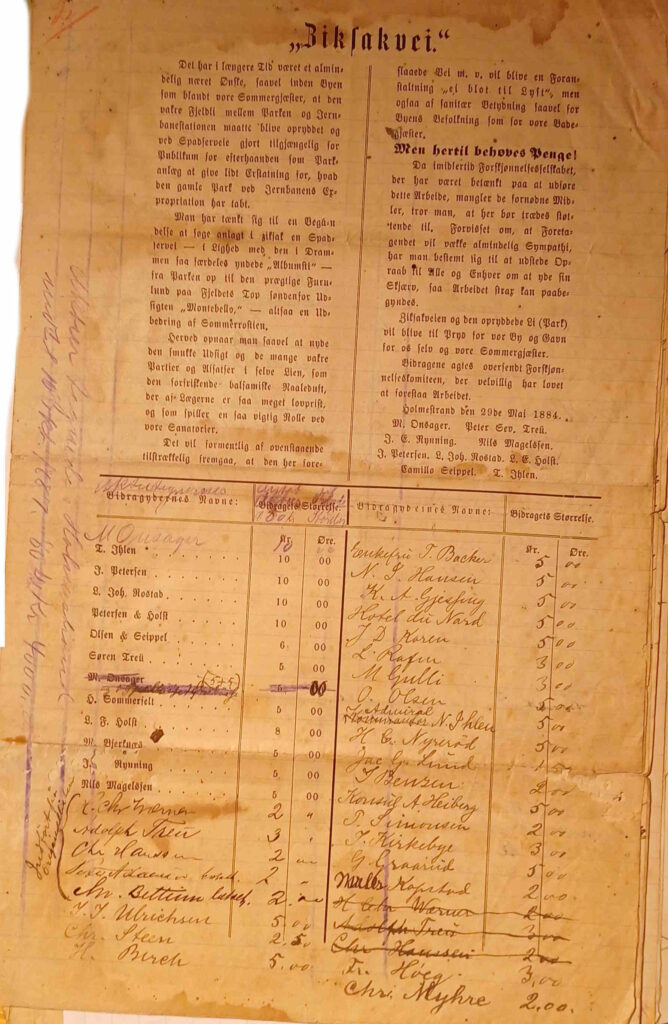 „Ziksakvei.“
Det har i længere Tid været et almin-
delig næret Ønske, saavel inden Byen
som blandt vore Sommergjæster, at den
vakre Fjeldli mellem Parken og Jern-
banestationen maatte blive opryddet og
ved Spadserveie gjort tilgjængelig for
Publikum for efterhaanden som Park-
anlæg at give lidt Erstatning for, hvad
den gamle Park ved Jernbanens Ex-
propriation har tabt.
Man har tænkt sig til en Begyn-
delse at søge anlagt i ziksak en Spad-
servei — i Lighed med den i Dram-
men saa særdeles yndede „Albumsti“ —
fra Parken op til den prægtige Furu-
lund paa Fjeldets Top søndenfor Ud-
sigten „Montebello,“ — altsaa en Ud-
bedring af Sommerrostien.
Herved opnaar man saavel at nyde
den smukke Udsigt og de mange vakre
Partier og Afsatser i selve Lien, som
den forfriskende balsamiske Naaleduft,
der af Lægerne er saa meget lovprist,
og som spiller en saa vigtig Rolle ved
vore Sanatorier.
Det vil formentlig af ovenstaaende
tilstrækkelig fremgaa, at den her fore-
slaaede Vei m. v. vil blive en Foran-
staltning „ej blot til Lyst“, men
ogsaa af sanitær Betydning saavel for
Byens Befolkning som for vore Bade-
gjæster.
Men hertil behøves Penge!
Da imidlertid Forskjønnelsesselskabet,
der har været betænkt paa at udføre
dette Arbeide, mangler de fornødne Mid-
ler, tror man, at her bør trædes støt-
tende til. Forvisset om, at Foreta-
gendet vil vække almindelig Sympathi,
har man bestemt sig til at udstede Op-
raab til Alle og Enhver om at yde sin
Skjærv, saa Arbeidet strax kan paabe-
gyndes.
Ziksakveien og den opryddede Li (Park)
vil blive til Pryd for vor By og Gavn
for os selv og vore Sommergjæster.
Bidragene agtes oversendt Forskjøn-
nelseskomiteen, der velvillig har lovet
at forestaa Arbeidet.
Holmestrand den 29de Mai 1884.
M. Onsager. Peter Sev. Treü.
J. E. Rynning. Nils Magelssen.
J. Petersen. L. Joh. Rostad. L. E. Holst.
Camillo Seippel. T. Ihlen.
Bidragydernes Navne: Bidragets Størrelse.
Kr. Øre.
M Onsager 10 00
T. Ihlen 10 00
J. Petersen 10 00
L. Joh. Rostad 10 00
Petersen & Holst 10 00
Olsen & Seippel 6 00
Søren Treü 5 00
M. Onsager 5 00
H. Sommerfelt 5 00
L. F. Holst 8 00
M. Bjerknæs 5 00
J. Rynning 5 00
Nils Magelssen 5 00
Chr Værner 2 "
Adolph Treu 3 "
Chr Hanssen 2
2 "
Bettum 2.
J. J. Ulrichsen 5.00
Chr. Steen 2.50
H. Birch 5.00
Bidragydernes Navne: Bidragets Størrelse.
Kr. Øre.
Enkefru T. Backer 5 00
N. S. Hansen 5 00
K. A. Gjessing 5 00
Hotel du Nord 5 00
J D Koren 5 00
L Rafin 3 00
M Gulli 3 00
O. Olsen
Admiral N. Ihlen 5 00
H C Nyrerød 5 00
Jac G Lund
J Benzen 2 00
Konsul A Heiberg 5 00
T. Simonsen 2 00
J. Kirkebye 3 00
G Graarud 5 00
Kopstad 2 00
H Chr Værner 2 00
Adolph Treü 3 00
Chr Hanssen 2 00
Fr. Hoeg 3,00
Chr. Myhre 2,00.